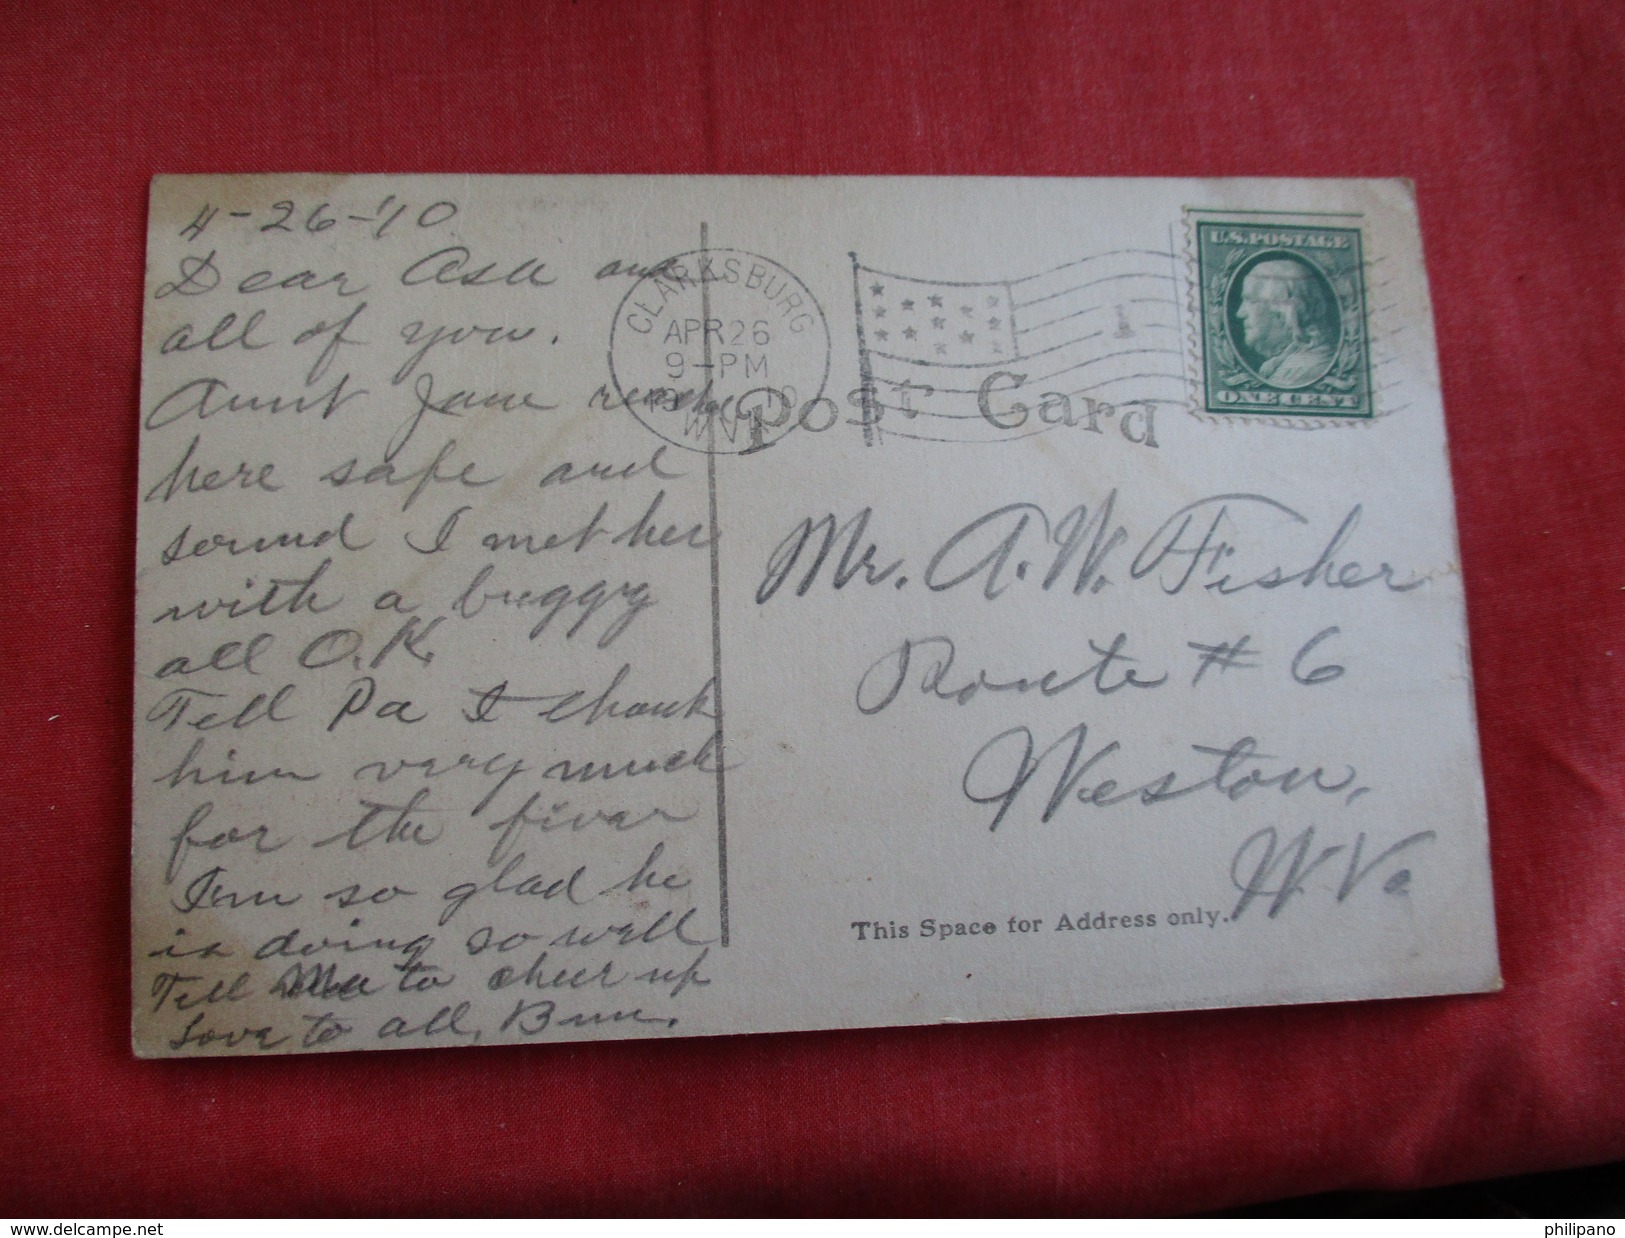 4-26-'10
Dear Asa and
all of you.
Aunt Jane reach
here safe and
sound I met her
with a buggy
all O.K.
Tell Pa I thank
him very much
for the fivar
I'm so glad he
is doing so well
Tell Ma to cheer up
Love to all,
CLARKSBURG
APR 26
9-PM
1910
W.VA.
U.S. POSTAGE
ONE CENT
Post Card
Mr. A. W. Fisher
Route # 6
Weston,
W. Va
This Space for Address only.
delcampe.net
philipano